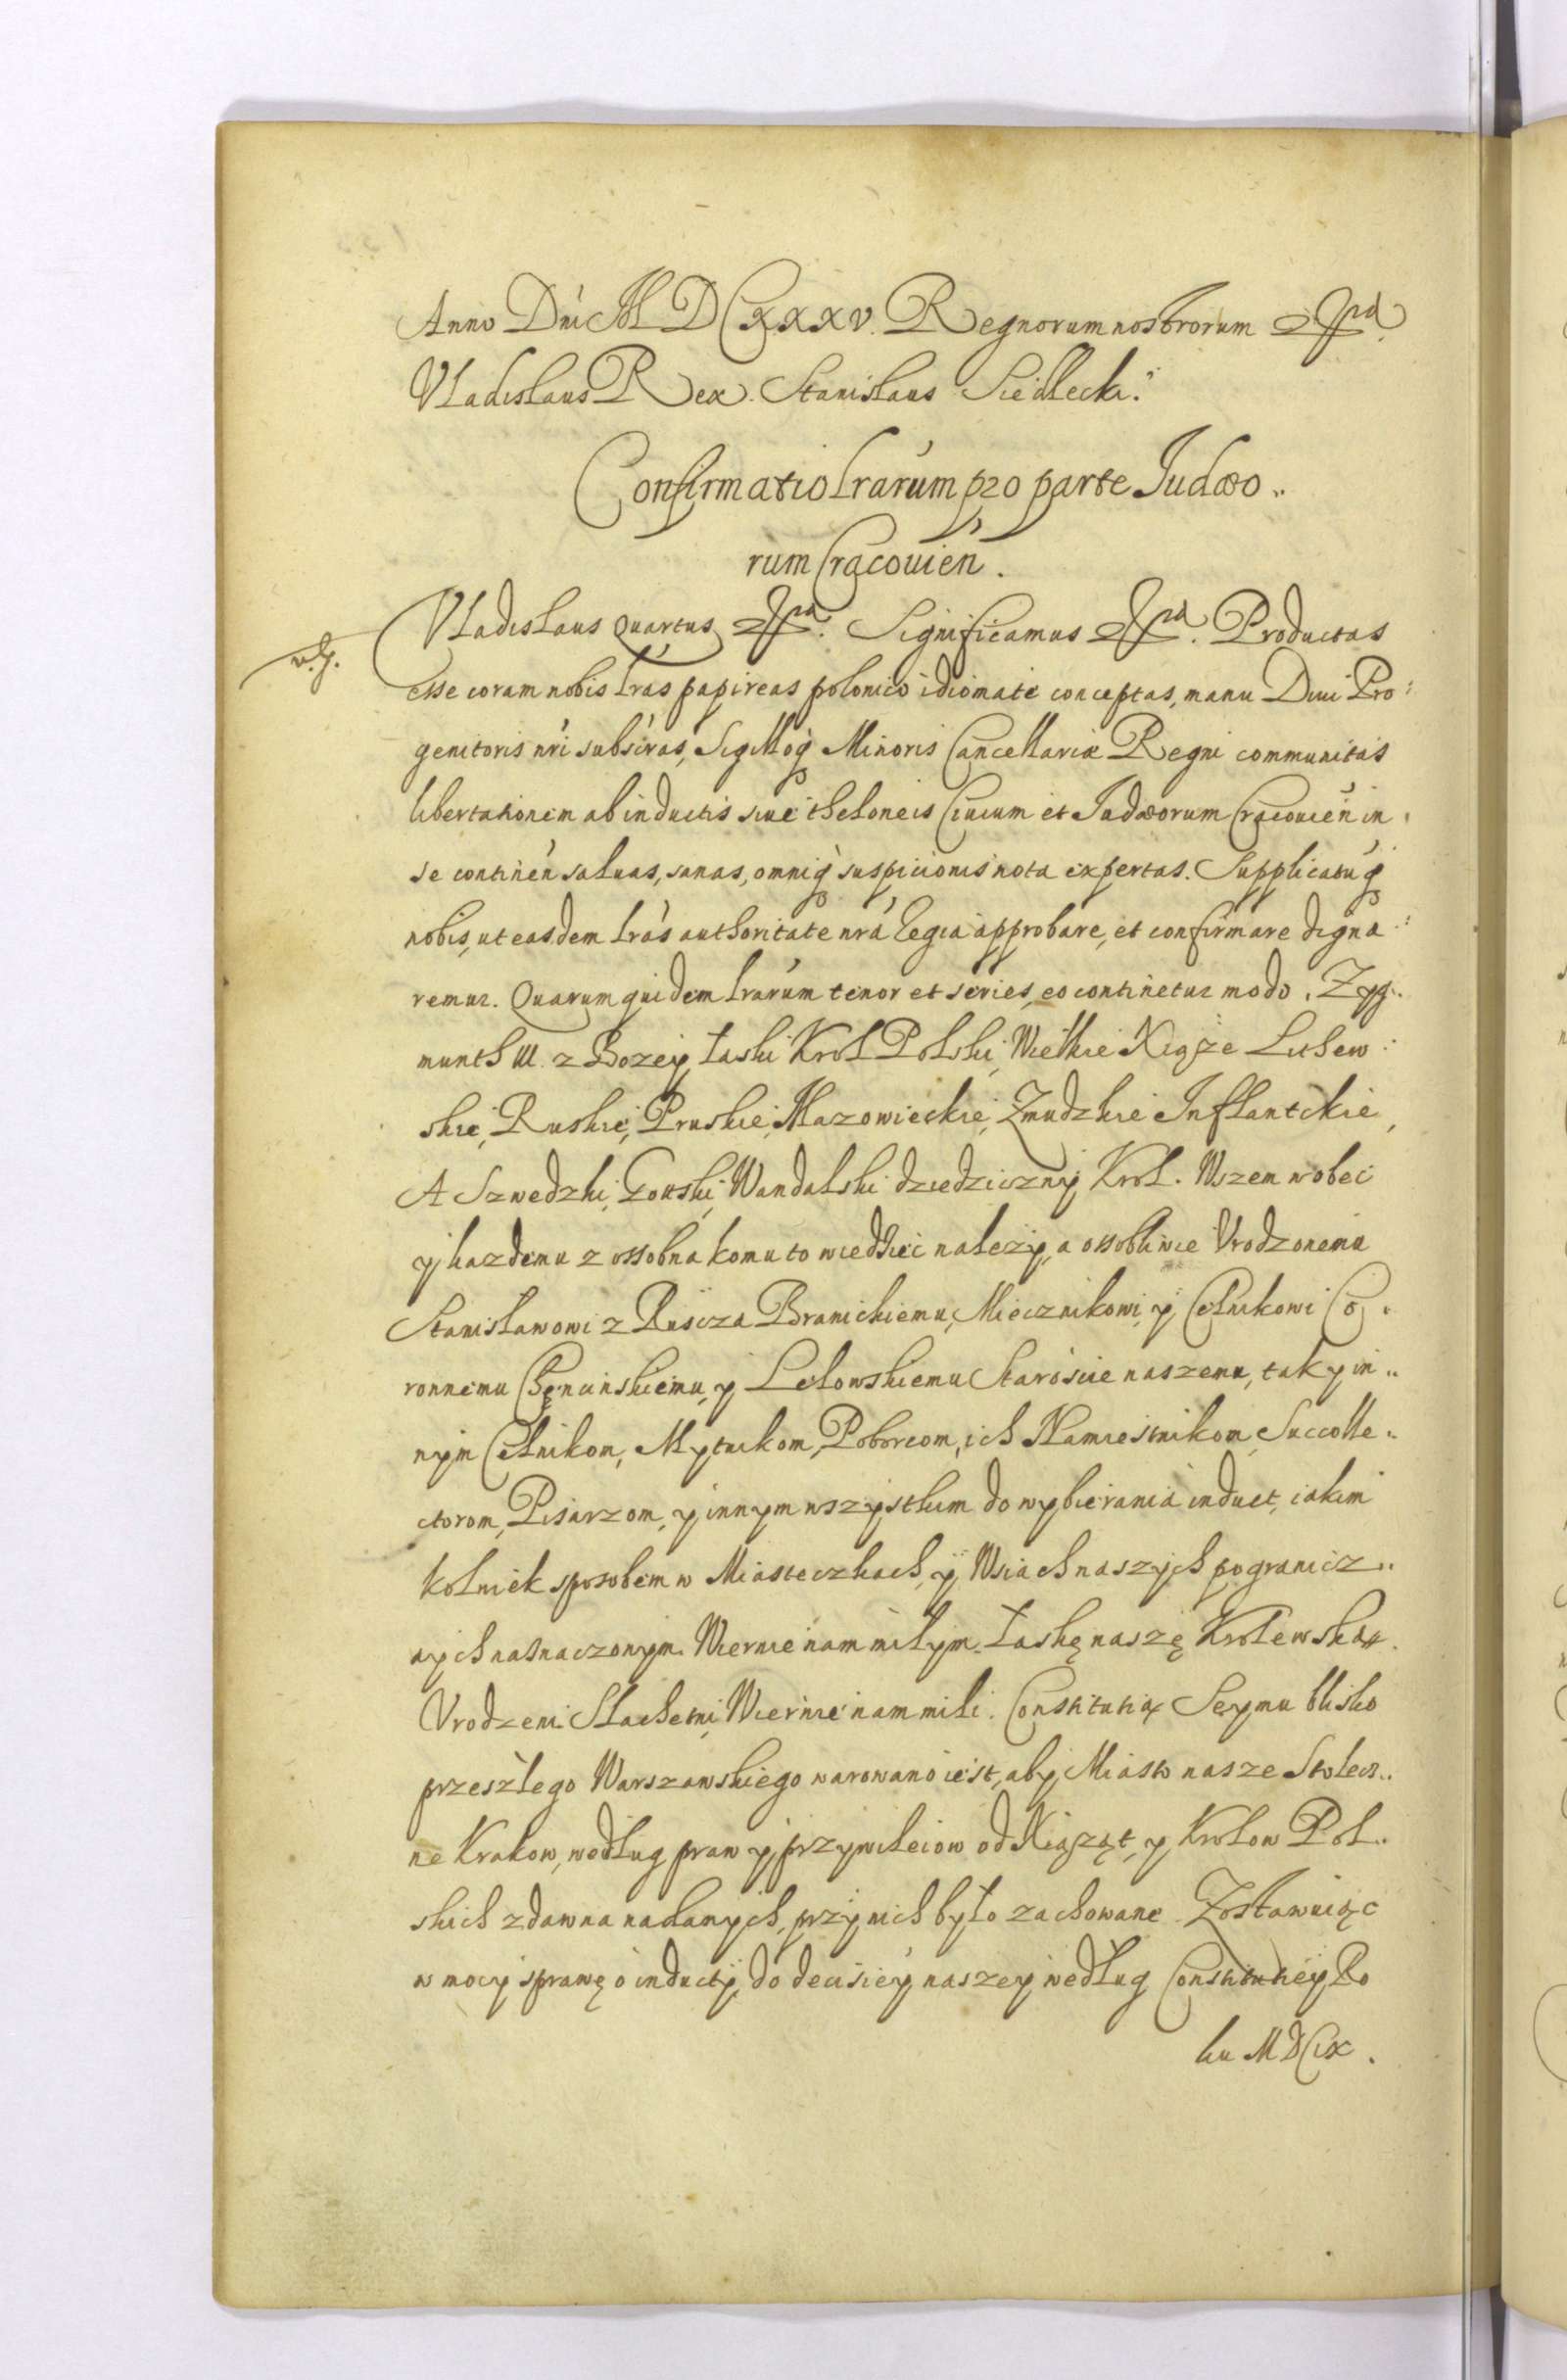 Anno Dni M D C XXXV. Regnorum nostrorum
Vladislaus Rex. Stanislaus Siedlecki.
Confirmatio lrarum pro parte Judæo..
rum Cracouien.
Vladislaus Quartus Significamus Productas
esse coram nobis lras papireas polonico idiomate conceptas, manu Diui Pro:
genitoris nri subscras, Sigilloq Minoris Cancellariæ Regni communitas
libertationem ab inductis siue theloneis Ciuium et Judæorum Cracouien in
se continen saluas, sanas, omniq suspicionis nota expertas. Supplicatuq
nobis, ut easdem lras authoritate nra Regia approbare, et confirmare digna:
remur. Quarum quidem lrarum tenor et series, eo continetur modo. Zyg..
munth III. z Bozey łaski Krol Polski, Wielkie Xiąże Lithew:
skie, Ruskie, Pruskie, Mazowieckie, Zmudzkie Inflantckie,
A Szwedzki, Gottski, Wandalski dziedziczny Krol. Wszem wobec
y kazdemu z ossobna komu to wiedziec nalezy, a ossobliwie Vrodzonemu
Stanisławowi z Ruscza Branickiemu, Miecznikowi, y Celnikowi Co.
ronnemu Chęncinskiemu, y Lelowskiemu Staroscie naszemu, tak y in..
nym Celnikom, Mytnikom, Poborcom, ich Namiestnikom, Succolle..
ctorom, Pisarzom, y innym wszystkim do wybierania induct, iakim
kolwiek sposobem w Miasteczkach, y Wsiach naszych pogranicz..
nych naznaczonym. Wiernie nam miłym. łaskę naszę Krolewską.
Vrodzeni Slachetni, Wiernie nam mili. Constitutią Seymu blisko
przeszłego Warszawskiego warowano iest, aby Miasto nasze Stolecz..
ne Krakow, według praw y przywileiow od Xiążąt, y Krolow Pol.
skich zdawna nadanych, przy nich było zachowane. Zostawuiąc
w mocy sprawę o inducty, do decisiey naszey według Constitutiey Ro
ku MDCix.